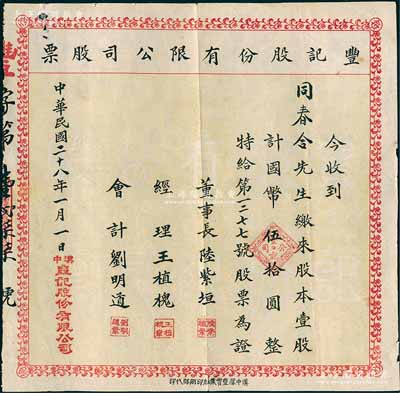 豐記股份有限公司股票
今收到
同春合先生繳來股本壹股
計國幣伍拾圓整
特給第一三七七號股票為證
董事長陸紫垣
經理王植槐
會計劉明道
中華民國二十八年一月一日
漢中豐記股份有限公司
字第
號